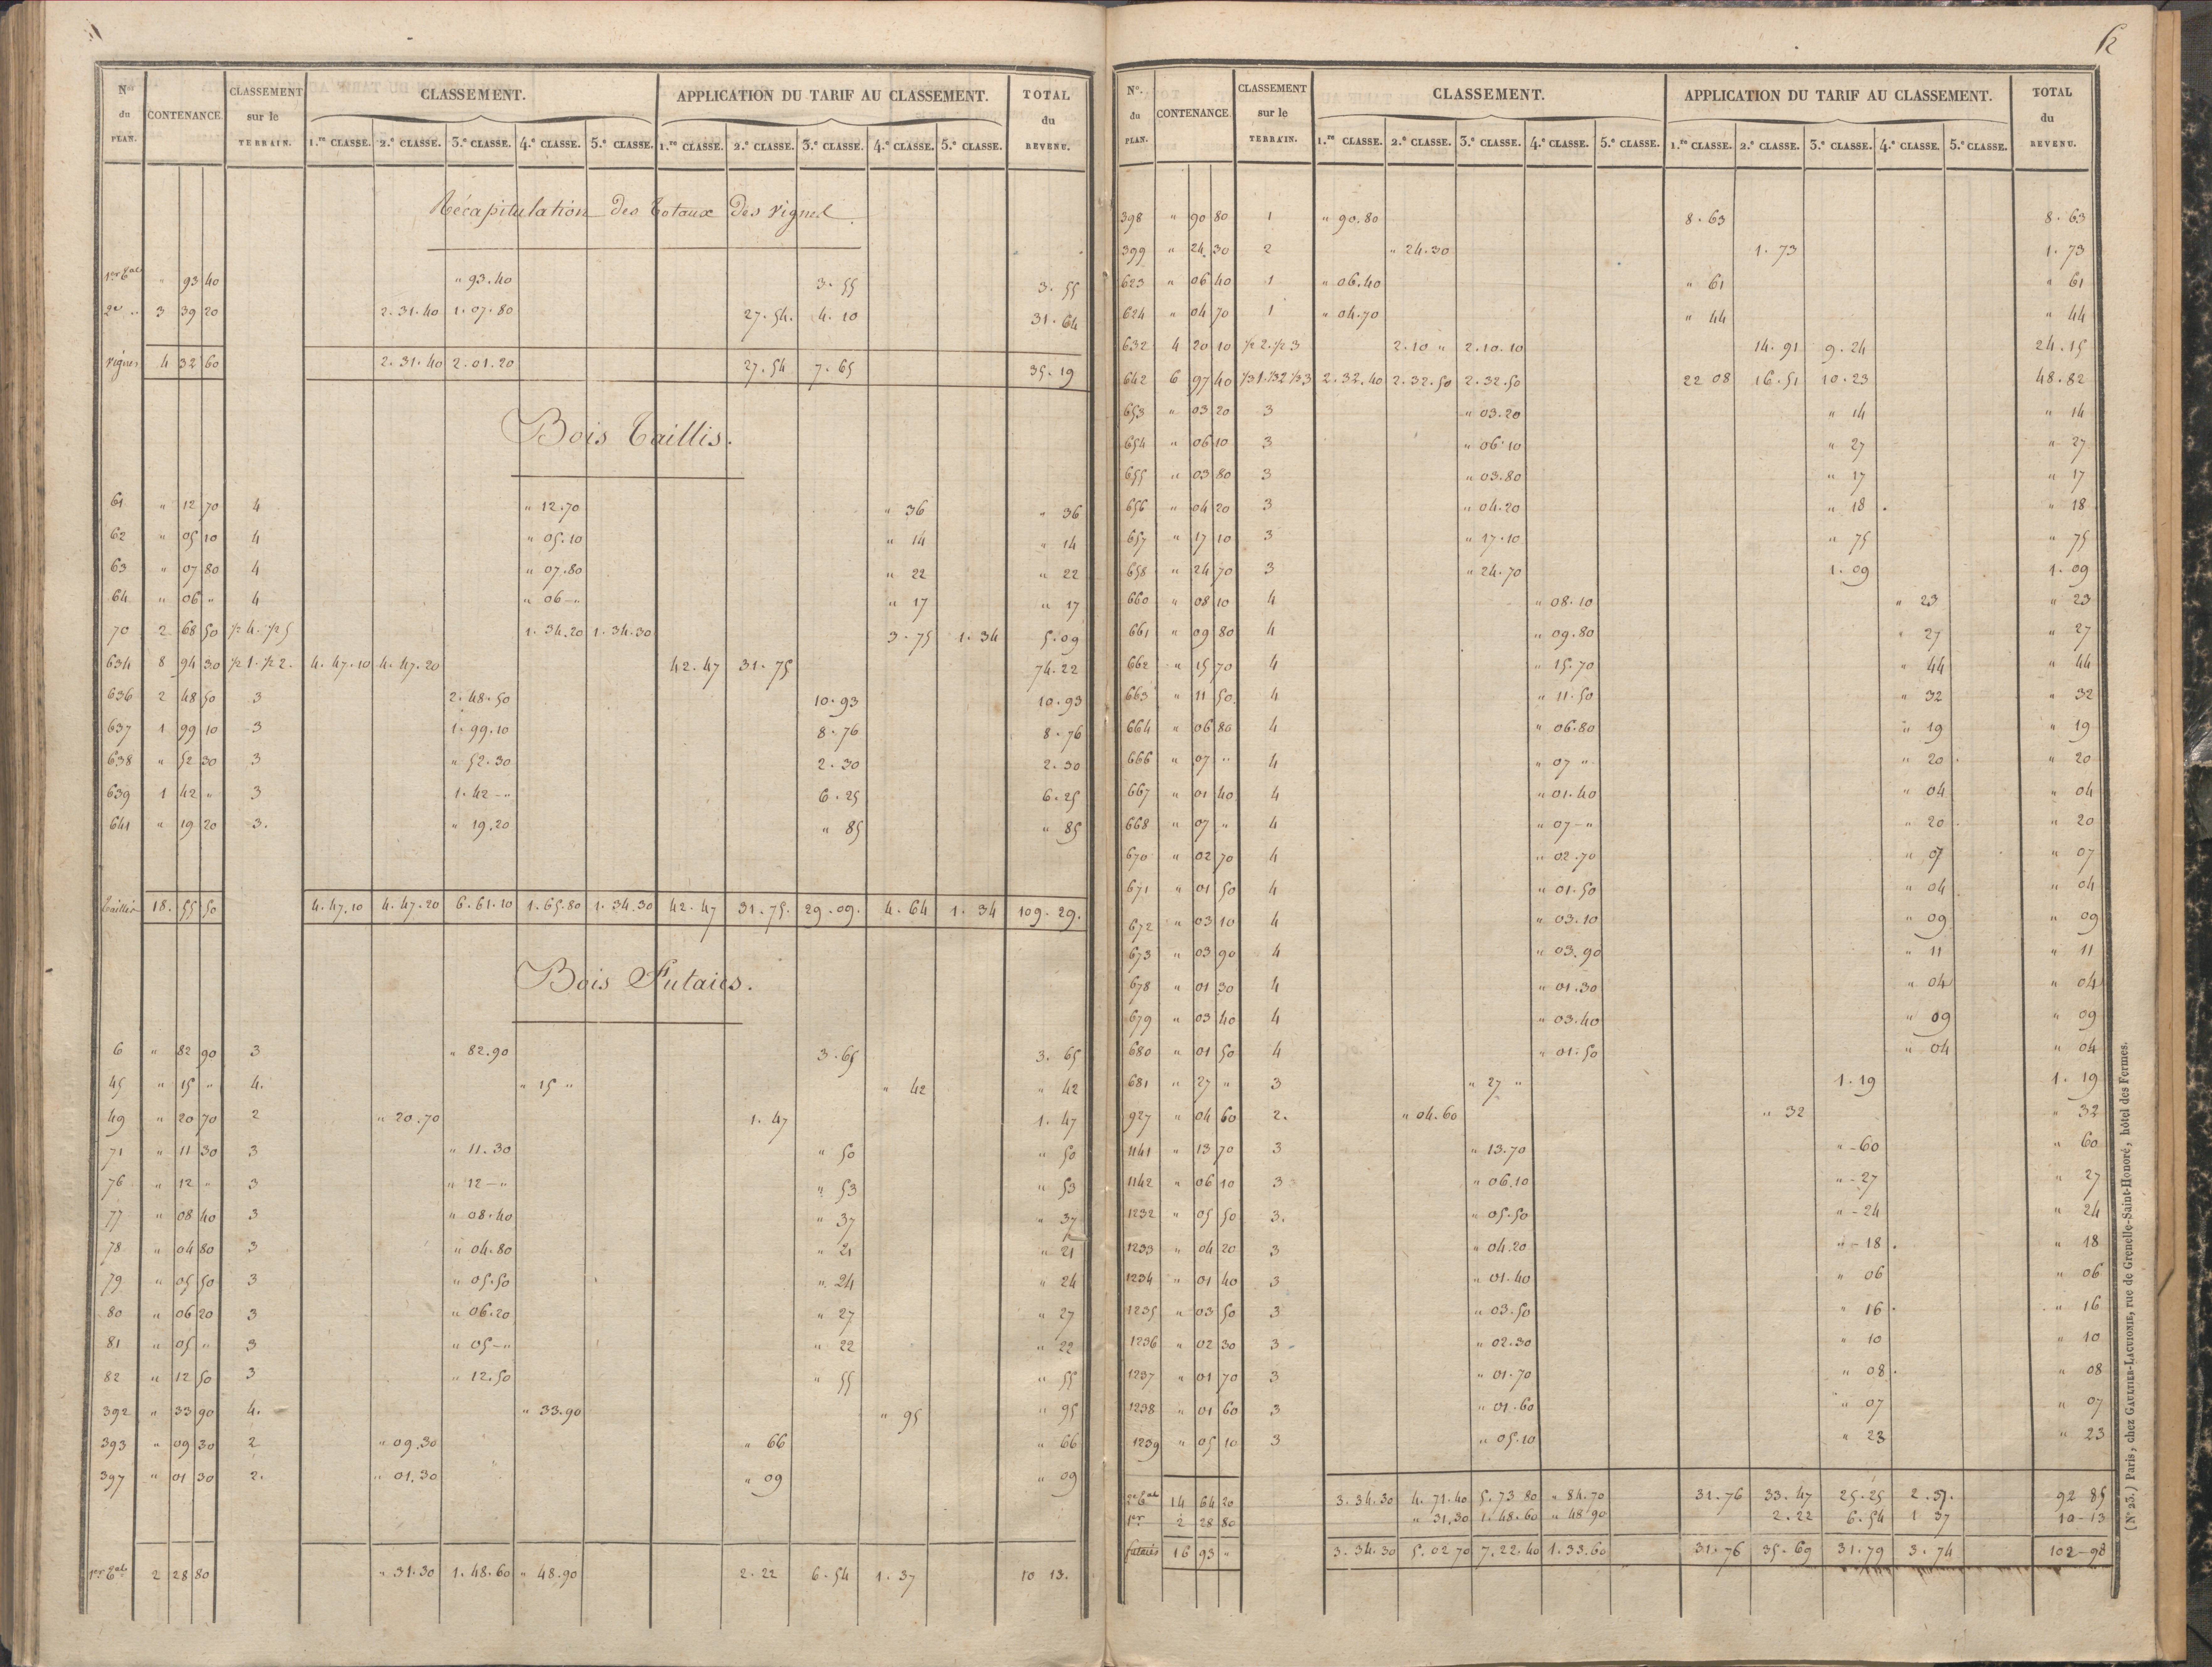 Nos du PLAN. CONTENANCE. CLASSEMENT sur le TERRAIN. CLASSEMENT. APPLICATION DU TARIF AU CLASSEMENT. TOTAL du REVENU.
1.re CLASSE. 2.e CLASSE. 3.e CLASSE. 4.e CLASSE. 5.e CLASSE. 1.re CLASSE. 2.e CLASSE. 3.e CLASSE. 4.e CLASSE. 5.e CLASSE.
Récapitulation des totaux des vignes.
1er Tal " 93 40 " 93.40 3.55 3.55
2e " 3 39 20 2.31.40 1.07.80 27.54. 4.10 31.64
vignes 4 32 60 2.31.40 2.01.20 27.54 7.65 35.19
Bois Taillis.
61 " 12 70 4 " 12.70 " 36 " 36
62 " 05 10 4 " 05.10 " 14 " 14
63 " 07 80 4 " 07.80 " 22 " 22
64 " 06 " 4 " 06-" " 17 " 17
70 2 68 50 1/2 4. 1/2 5 1.34.20 1.34.30 3.75 1.34 5.09
634 8 94 30 1/2 1. 1/2 2. 4.47.10 4.47.20 42.47 31.75 74.22
636 2 48 50 3 2.48.50 10.93 10.93
637 1 99 10 3 1.99.10 8.76 8.76
638 " 52 30 3 " 52.30 2.30 2.30
639 1 42 " 3 1.42-" 6.25 6.25
641 " 19 20 3. " 19.20 " 85 " 85
Taillis 18. 55 50 4.47.10 4.47.20 6.61.10 1.65.80 1.34.30 42.47 31.75. 29.09. 4.64 1.34 109.29.
Bois Futaies.
6 " 82 90 3 " 82.90 3.65 3.65
45 " 15 " 4. " 15 " " 42 " 42
49 " 20 70 2 " 20.70 1.47 1.47
71 " 11 30 3 " 11.30 " 50 " 50
76 " 12 " 3 " 12-" " 53 " 53
77 " 08 40 3 " 08.40 " 37 " 37
78 " 04 80 3 " 04.80 " 21 " 21
79 " 05 50 3 " 05.50 " 24 " 24
80 " 06 20 3 " 06.20 " 27 " 27
81 " 05 " 3 " 05-" " 22 " 22
82 " 12 50 3 " 12.50 " 55 " 55
392 " 33 90 4. " 33.90 " 95 " 95
393 " 09 30 2 " 09.30 " 66 " 66
397 " 01 30 2. " 01.30 " 09 " 09
1er Tal 2 28 80 " 31.30 1.48.60 " 48.90 2.22 6.54 1.37 10 13.
No. du PLAN. CONTENANCE. CLASSEMENT sur le TERRAIN. CLASSEMENT. APPLICATION DU TARIF AU CLASSEMENT. TOTAL du REVENU.
1.re CLASSE. 2.e CLASSE. 3.e CLASSE. 4.e CLASSE. 5.e CLASSE. 1.re CLASSE. 2.e CLASSE. 3.e CLASSE. 4.e CLASSE. 5.e CLASSE.
398 " 90 80 1 " 90.80 8.63 8.63
399 " 24 30 2 " 24.30 1.73 1.73
623 " 06 40 1 " 06.40 " 61 " 61
624 " 04 70 1 " 04.70 " 44 " 44
632 4 20 10 1/2 2. 1/2 3 2.10 " 2.10.10 14.91 9.24 24.15
642 6 97 40 1/3 1. 1/3 2 1/3 3 2.32.40 2.32.50 2.32.50 22 08 16.51 10.23 48.82
653 " 03 20 3 " 03.20 " 14 " 14
654 " 06 10 3 " 06.10 " 27 " 27
655 " 03 80 3 " 03.80 " 17 " 17
656 " 04 20 3 " 04.20 " 18. " 18
657 " 17 10 3 " 17.10 " 75 " 75
658 " 24 70 3 " 24.70 1.09 1.09
660 " 08 10 4 " 08.10 " 23 " 23
661 " 09 80 4 " 09.80 " 27 " 27
662 " 15 70 4 " 15.70 " 44 " 44
663 " 11 50 4 " 11.50 " 32 " 32
664 " 06 80 4 " 06.80 " 19 " 19
666 " 07 " 4 " 07 " " 20. " 20
667 " 01 40 4 " 01.40 " 04 " 04
668 " 07 " 4 " 07-" " 20. " 20
670 " 02 70 4 " 02.70 " 07 " 07
671 " 01 50 4 " 01.50 " 04 " 04
672 " 03 10 4 " 03.10 " 09 " 09
673 " 03 90 4 " 03.90 " 11 " 11
678 " 01 30 4 " 01.30 " 04 " 04
679 " 03 40 4 " 03.40 " 09 " 09
680 " 01 50 4 " 01.50 " 04 " 04
681 " 27 " 3 " 27 " 1.19 1.19
927 " 04 60 2. " 04.60 " 32 " 32
1141 " 13 70 3 " 13.70 "-60 " 60
1142 " 06 10 3 " 06.10 "-27 " 27
1232 " 05 50 3. " 05.50 "-24 " 24
1233 " 04 20 3 " 04.20 "-18. " 18
1234 " 01 40 3 " 01.40 " 06 " 06
1235 " 03 50 3 " 03.50 " 16. " 16
1236 " 02 30 3 " 02.30 " 10 " 10
1237 " 01 70 3 " 01.70 " 08. " 08
1238 " 01 60 3 " 01.60 " 07 " 07
1239 " 05 10 3 " 05.10 " 23 " 23
2e Tal 14 64 20 3.34.30 4.71.40 5.73 80 " 84.70 31.76 33.47 25.25 2.37. 92 85
1er 2 28 80 " 31.30 1.48.60 " 48 90 2.22 6.54 1 37 10-13
futaies 16 93 " 3.34.30 5.02 70 7.22.40 1.33.60 31.76 35.69 31.79 3.74 102-98
(No 23.) Paris, chez GAULTIER-LAGUIONIE, rue de Grenelle-Saint-Honoré, hôtel des Fermes.